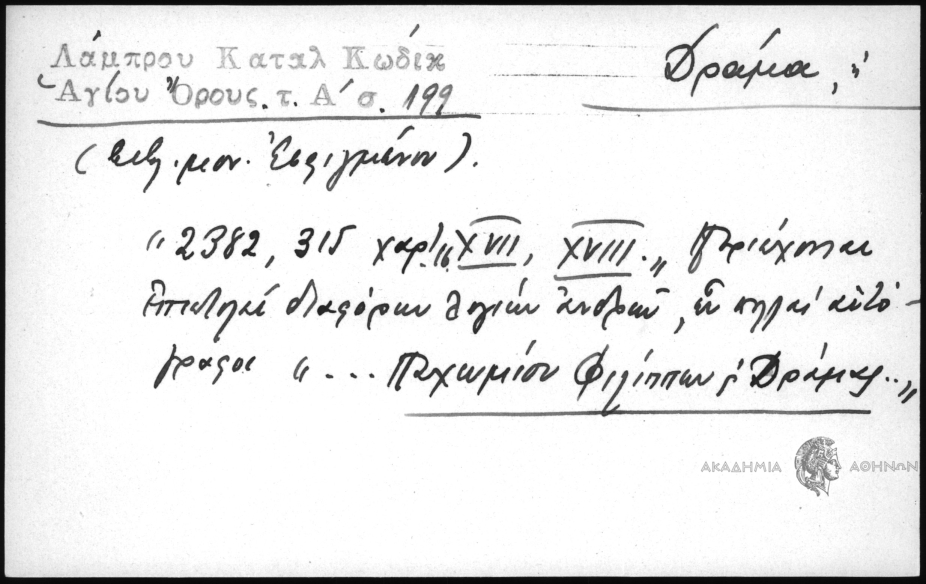 Λάμπρου Καταλ Κώδικ
Ἁγίου Ὄρους. τ. Α΄ σ. 199
Δράμα, ἡ
( μον. Ἐσφιγμένου ).
" 2382, 315 χαρτ. XVII, XVIII. „ Περιέχονται
Ἐπιστολαί διαφόρων λογίων ἀνδρῶν, ὧν πολλαί αὐτό-
γραφοι " ... Παχωμίου Φιλίππων ϛ Δράμας .. „
ΑΚΑΔΗΜΙΑ ΑΘΗΝΩΝ